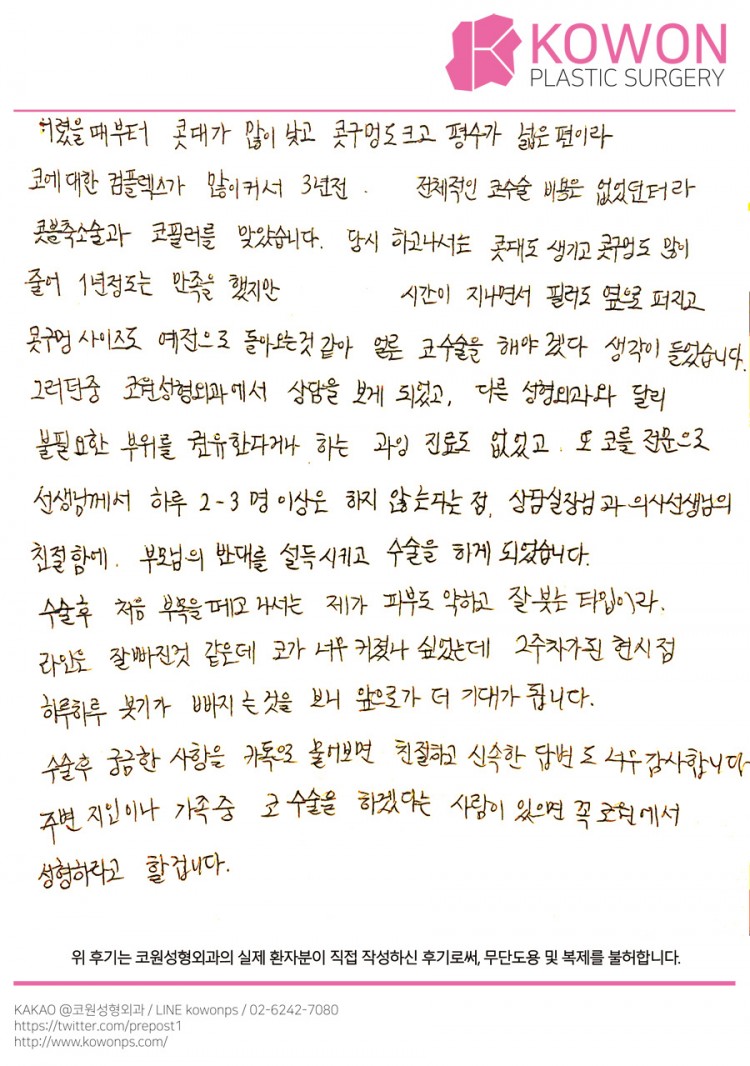 KOWON
PLASTIC SURGERY
어렸을때부터 콧대가 많이 낮고 콧구멍도크고 평수가 넓은편이라
코에대한 컴플렉스가 많이커서 3년전. 전체적인 코수술 비용은 없었던터라
콧볼축소술과 코필러를 맞았습니다. 당시 하고나서는 콧대도 생기고 콧구멍도 많이
줄어 1년정도는 만족을 했지만 시간이 지나면서 필러도 옆으로 퍼지고
콧구멍 사이즈도 예전으로 돌아오는것 같아 얼른 코수술을 해야 겠다 생각이 들었습니다.
그러던중 코원성형외과에서 상담을 보게 되었고, 다른 성형외과와 달리
불필요한 부위를 권유한다거나 하는 과잉 진료도 없었고. 또 코를 전문으로
선생님께서 하루 2-3명 이상은 하지 않는다는 점, 상담실장님과 의사선생님의
친절함에. 부모님의 반대를 설득시키고 수술을 하게 되었습니다.
수술후 처음 부목을 떼고 나서는 제가 피부도 약하고 잘붓는 타입이라.
라인은 잘빠진것 같은데 코가 너무 커졌나 싶었는데 2주차가된 현시점
하루하루 붓기가 빠지는것을 보니 앞으로가 더 기대가 됩니다.
수술후 궁금한 사항을 카톡으로 물어보면 친절하고 신속한 답변도 너무 감사합니다
주변 지인이나 가족중 코 수술을 하겠다는 사람이 있으면 꼭 코원에서
성형하라고 할겁니다.
위 후기는 코원성형외과의 실제 환자분이 직접 작성하신 후기로써, 무단도용 및 복제를 불허합니다.
KAKAO @코원성형외과 / LINE kowonps / 02-6242-7080
https://twitter.com/prepost1
http://www.kowonps.com/